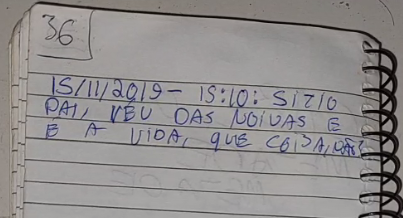 36
15/11/2019 - 15:10: SíTIO
PAI, VÉU DAS NOIVAS E
E A VIDA, QUE COISA, NÃO?